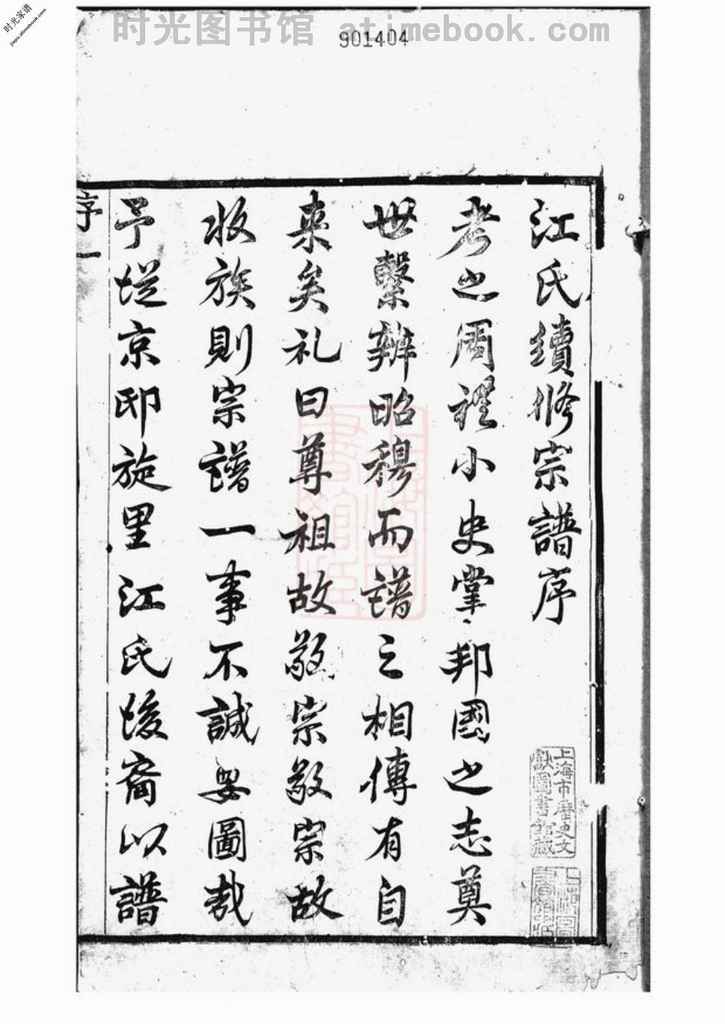 时光图书馆 atimebook.com
901404
时光家谱
jiapu.atimebook.com
江氏續修宗譜序
考之周禮小史掌邦國之志奠
世繫辨昭穆而譜之相傳有自
來矣礼曰尊祖故敬宗敬宗故
收族則宗譜一事不誠要圖哉
予從京邸旋里江氏後裔以譜
序 一
上海市歷史文
獻圖書館藏